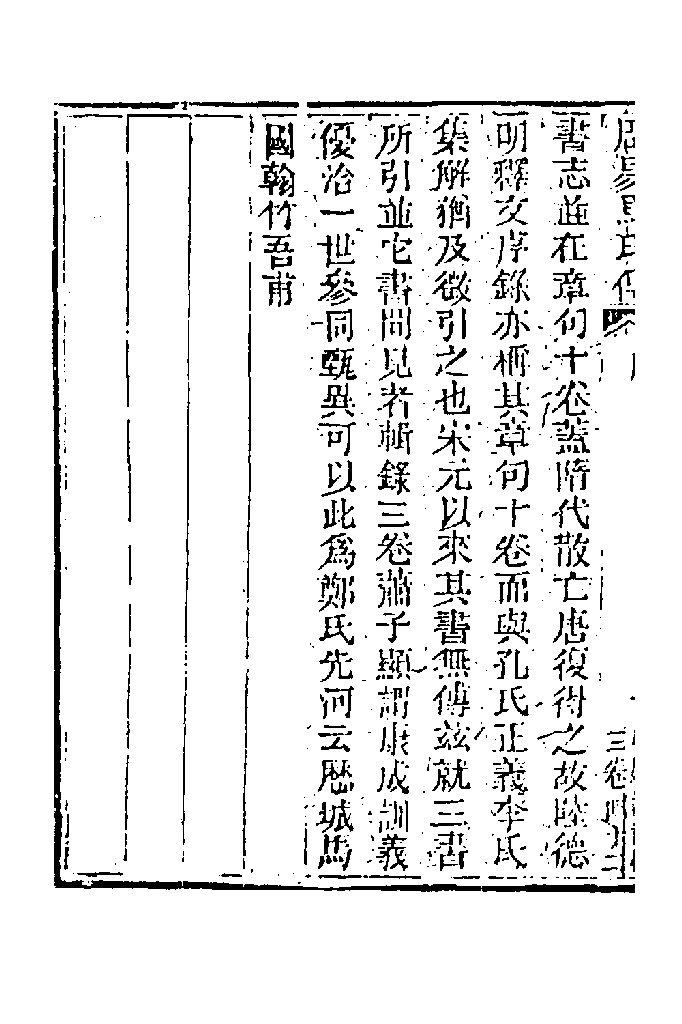 周易馬氏傳
書志並在章句十卷蓋隋代散亡唐復得之故陸德
明釋文序錄亦稱其章句十卷而與孔氏正義李氏
集解猶及徵引之也宋元以來其書無傳茲就三書
所引並它書間見者輯錄三卷蕭子顯謂康成訓義
優洽一世參同甄異可以此爲鄭氏先河云歷城馬
國翰竹吾甫